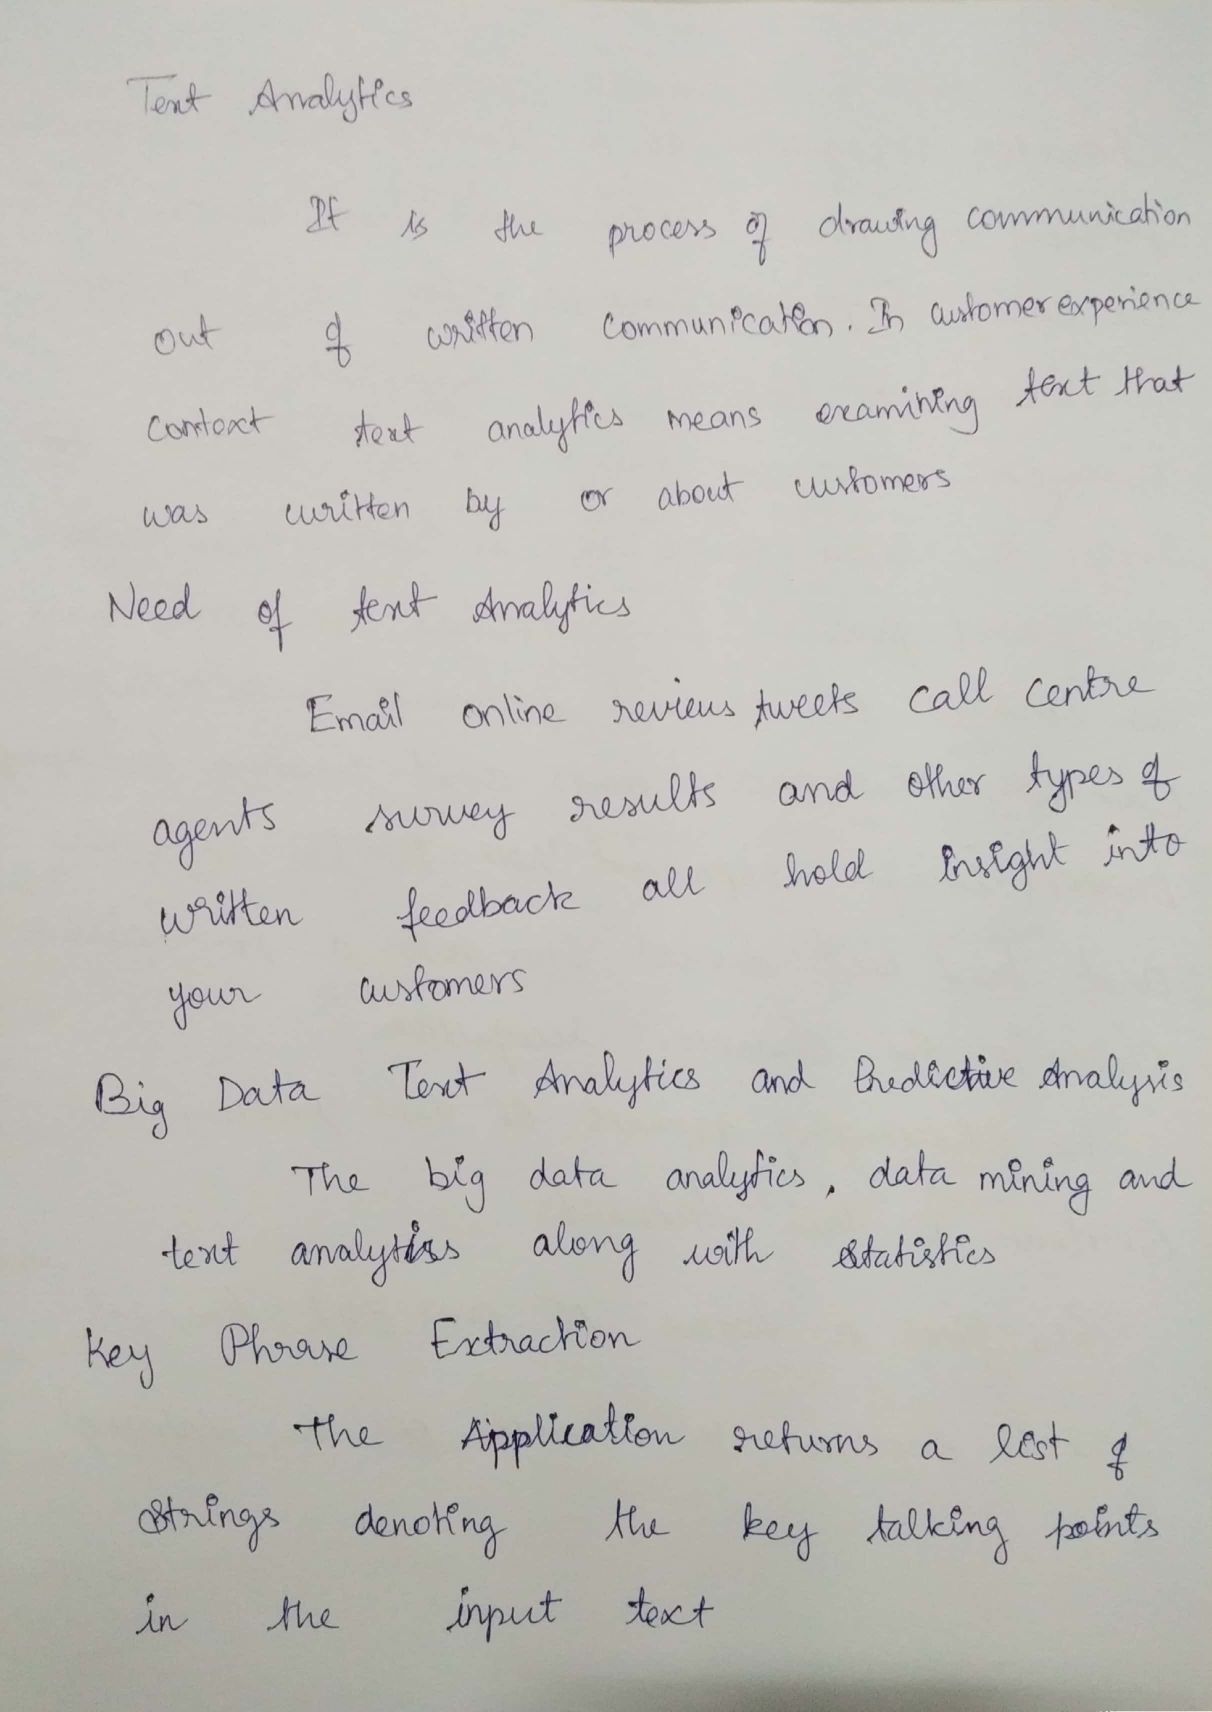 Text Analytics
It is the process of drawing communication
out of written communication. In customer experience
context text analytics means examining text that
was written by or about customers
Need of text Analytics
Email online reviews tweets call centre
agents survey results and other types of
written feedback all hold insight into
your customers
Big Data Text Analytics and Predictive Analysis
The big data analytics, data mining and
text analytics along with statistics
Key Phrase Extraction
The Application returns a list of
strings denoting the key talking points
in the input text